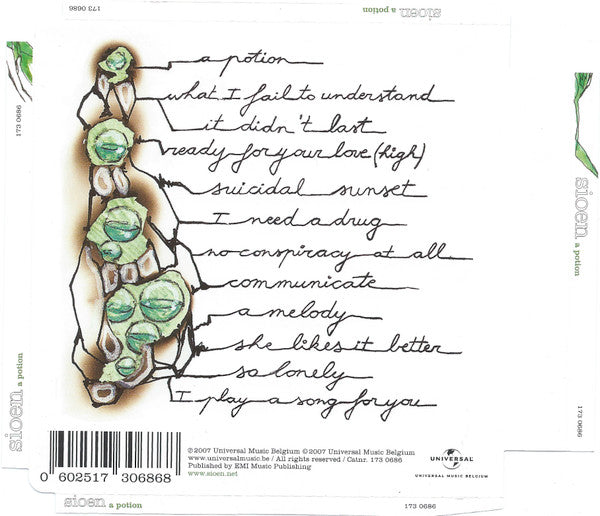 173 0686
sioen a potion
a potion
what I fail to understand
it didn't last
ready for your love (high)
suicidal sunset
I need a drug
no conspiracy at all
communicate
a melody
she likes it better
so lonely
I play a song for you
173 0686
sioen a potion
sioen a potion
173 0686
0 602517 306868
℗2007 Universal Music Belgium ©2007 Universal Music Belgium
www.universalmusic.be / All rights reserved / Catnr. 173 0686
Published by EMI Music Publishing
www.sioen.net
UNIVERSAL
UNIVERSAL MUSIC BELGIUM
sioen a potion
173 0686